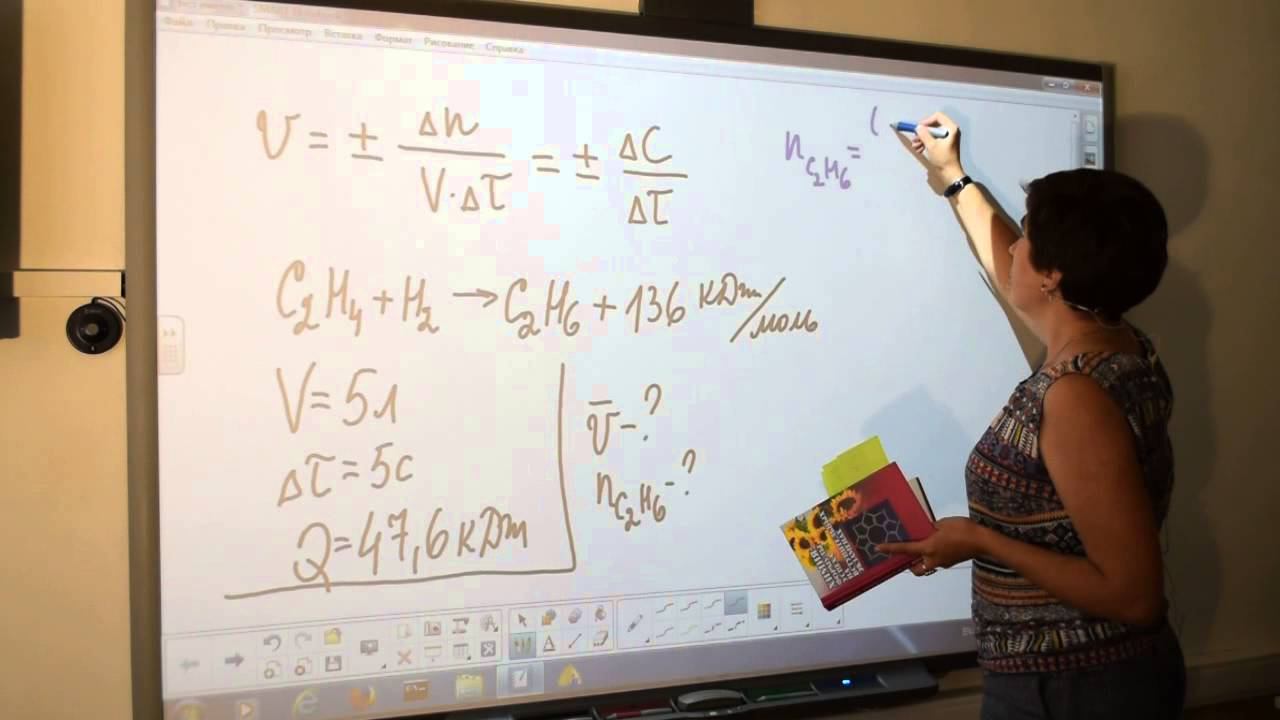 Файл Правка Просмотр Вставка Формат Рисование Справка
V = ± Δn / V·Δτ = ± ΔC / Δτ
C₂H₄ + H₂ → C₂H₆ + 136 кДж/моль
V = 5л
Δτ = 5c
Q = 47,6 кДж
V̅ - ?
n C₂H₆ - ?
n C₂H₆ =
ХИМИЯ